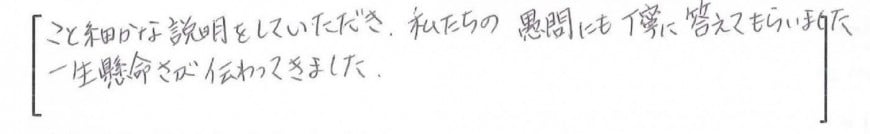 こと細かな説明をしていただき、私たちの愚問にも丁寧に答えてもらいました
一生懸命さが伝わってきました.